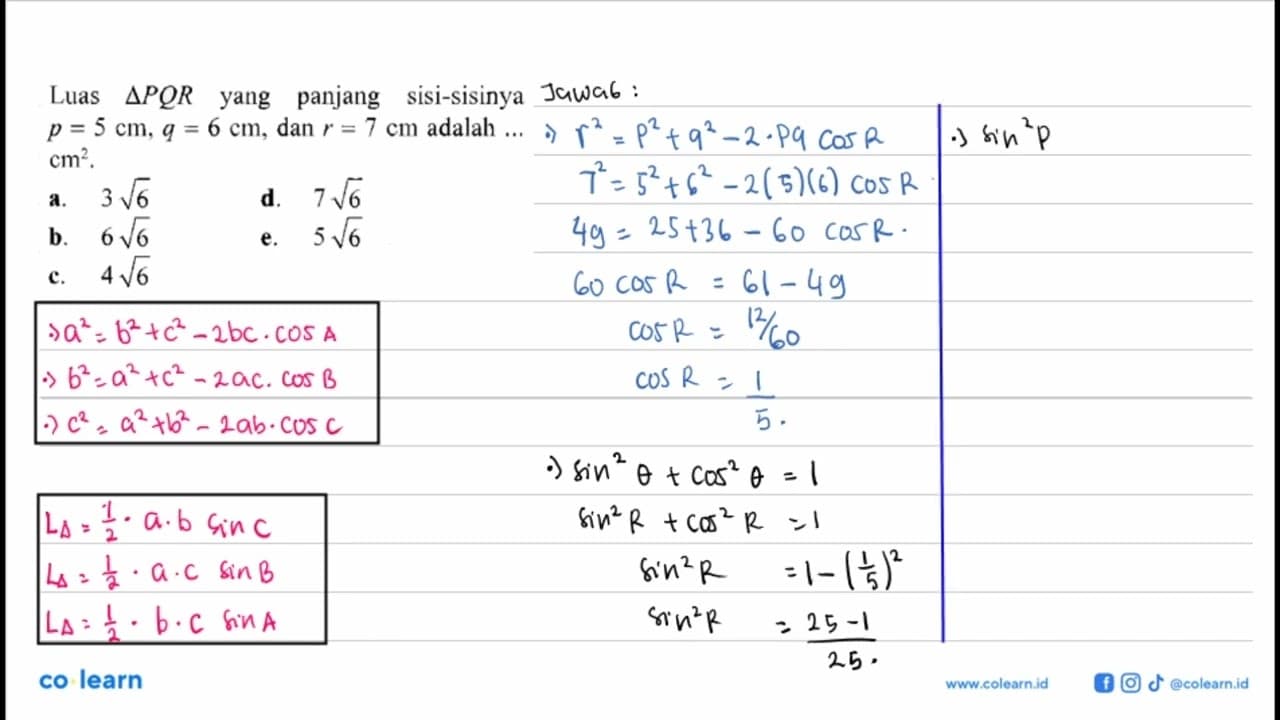 Luas ΔPQR yang panjang sisi-sisinya
p = 5 cm, q = 6 cm, dan r = 7 cm adalah ...
cm².
a. 3√6 d. 7√6
b. 6√6 e. 5√6
c. 4√6
∴) a² = b² + c² – 2bc · cos A
∴) b² = a² + c² – 2ac. cos B
∴) c² = a² + b² – 2ab · cos C
L∆ = 1/2 · a · b sin C
L∆ = 1/2 · a · c sin B
L∆ = 1/2 · b · c sin A
Jawab :
∴) r² = p² + q² – 2 · pq cos R
7² = 5² + 6² – 2(5)(6) cos R
49 = 25 + 36 – 60 cos R.
60 cos R = 61 – 49
cos R = 12/60
cos R = 1/5.
∴) sin² θ + cos² θ = 1
sin² R + cos² R = 1
sin² R = 1 – (1/5)²
sin² R = 25 – 1/25.
∴) sin² P
co learn
www.colearn.id @colearn.id